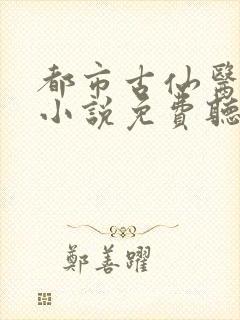 都市古仙醫
小説免費聽
鄭善躍